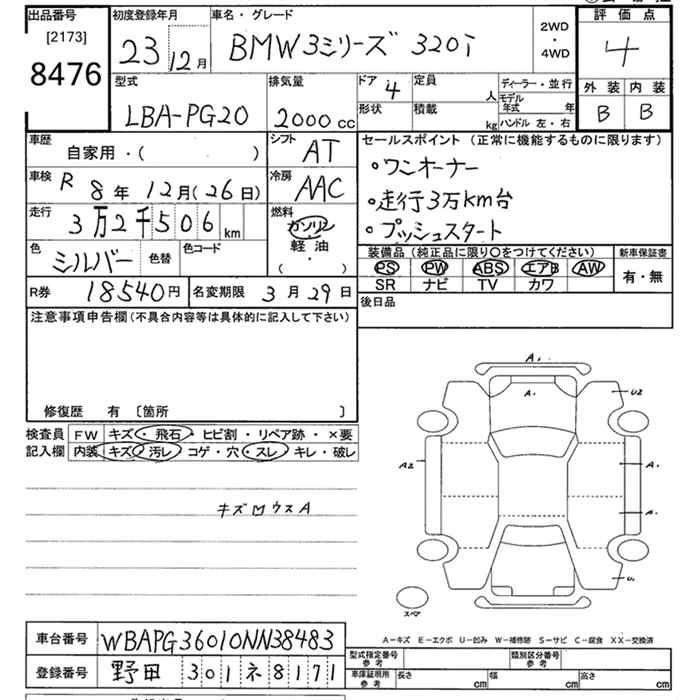 出品番号 初度登録年月 車名・グレード 評価点
[2173] 23 12月 BMW3シリーズ 320i 2WD・4WD 4
8476
型式 排気量 ドア 4 定員 人 ディーラー・並行 外装 内装
LBA-PG20 2000cc 形状 積載 kg モデル年式 年 B B
ハンドル 左・右
車歴 シフト セールスポイント (正常に機能するものに限ります)
自家用・( ) AT ・ワンオーナー
車検 R 8年 12月(26日) 冷房 AAC ・走行3万km台
走行 3万2千506km 燃料 ガソリン ・プッシュスタート
軽油
・
( )
色 シルバー 色替 色コード 装備品 (純正品に限り〇をつけてください) 新車保証書
PS PW ABS エアB AW 有・無
SR ナビ TV カワ
R券 18540円 名変期限 3月29日 後日品
注意事項申告欄(不具合内容等は具体的に記入して下さい)
修復歴 有 〔箇所 〕
検査員 FW キズ・飛石・ヒビ割・リペア跡・×要
記入欄 内装 キズ・汚レ・コゲ・穴・スレ・キレ・破レ
A.
A. U2
A2 A.
A.
U.
スペア
A-キズ E-エクボ U-凹み W-補修跡 S-サビ C-腐食 XX-交換済
車台番号 WBAPG36010NN38483
型式指定番号 参考 類別区分番号 参考
登録番号 野田 301 ネ 8171
車庫証明用 参考 長さ cm 幅 cm 高さ cm